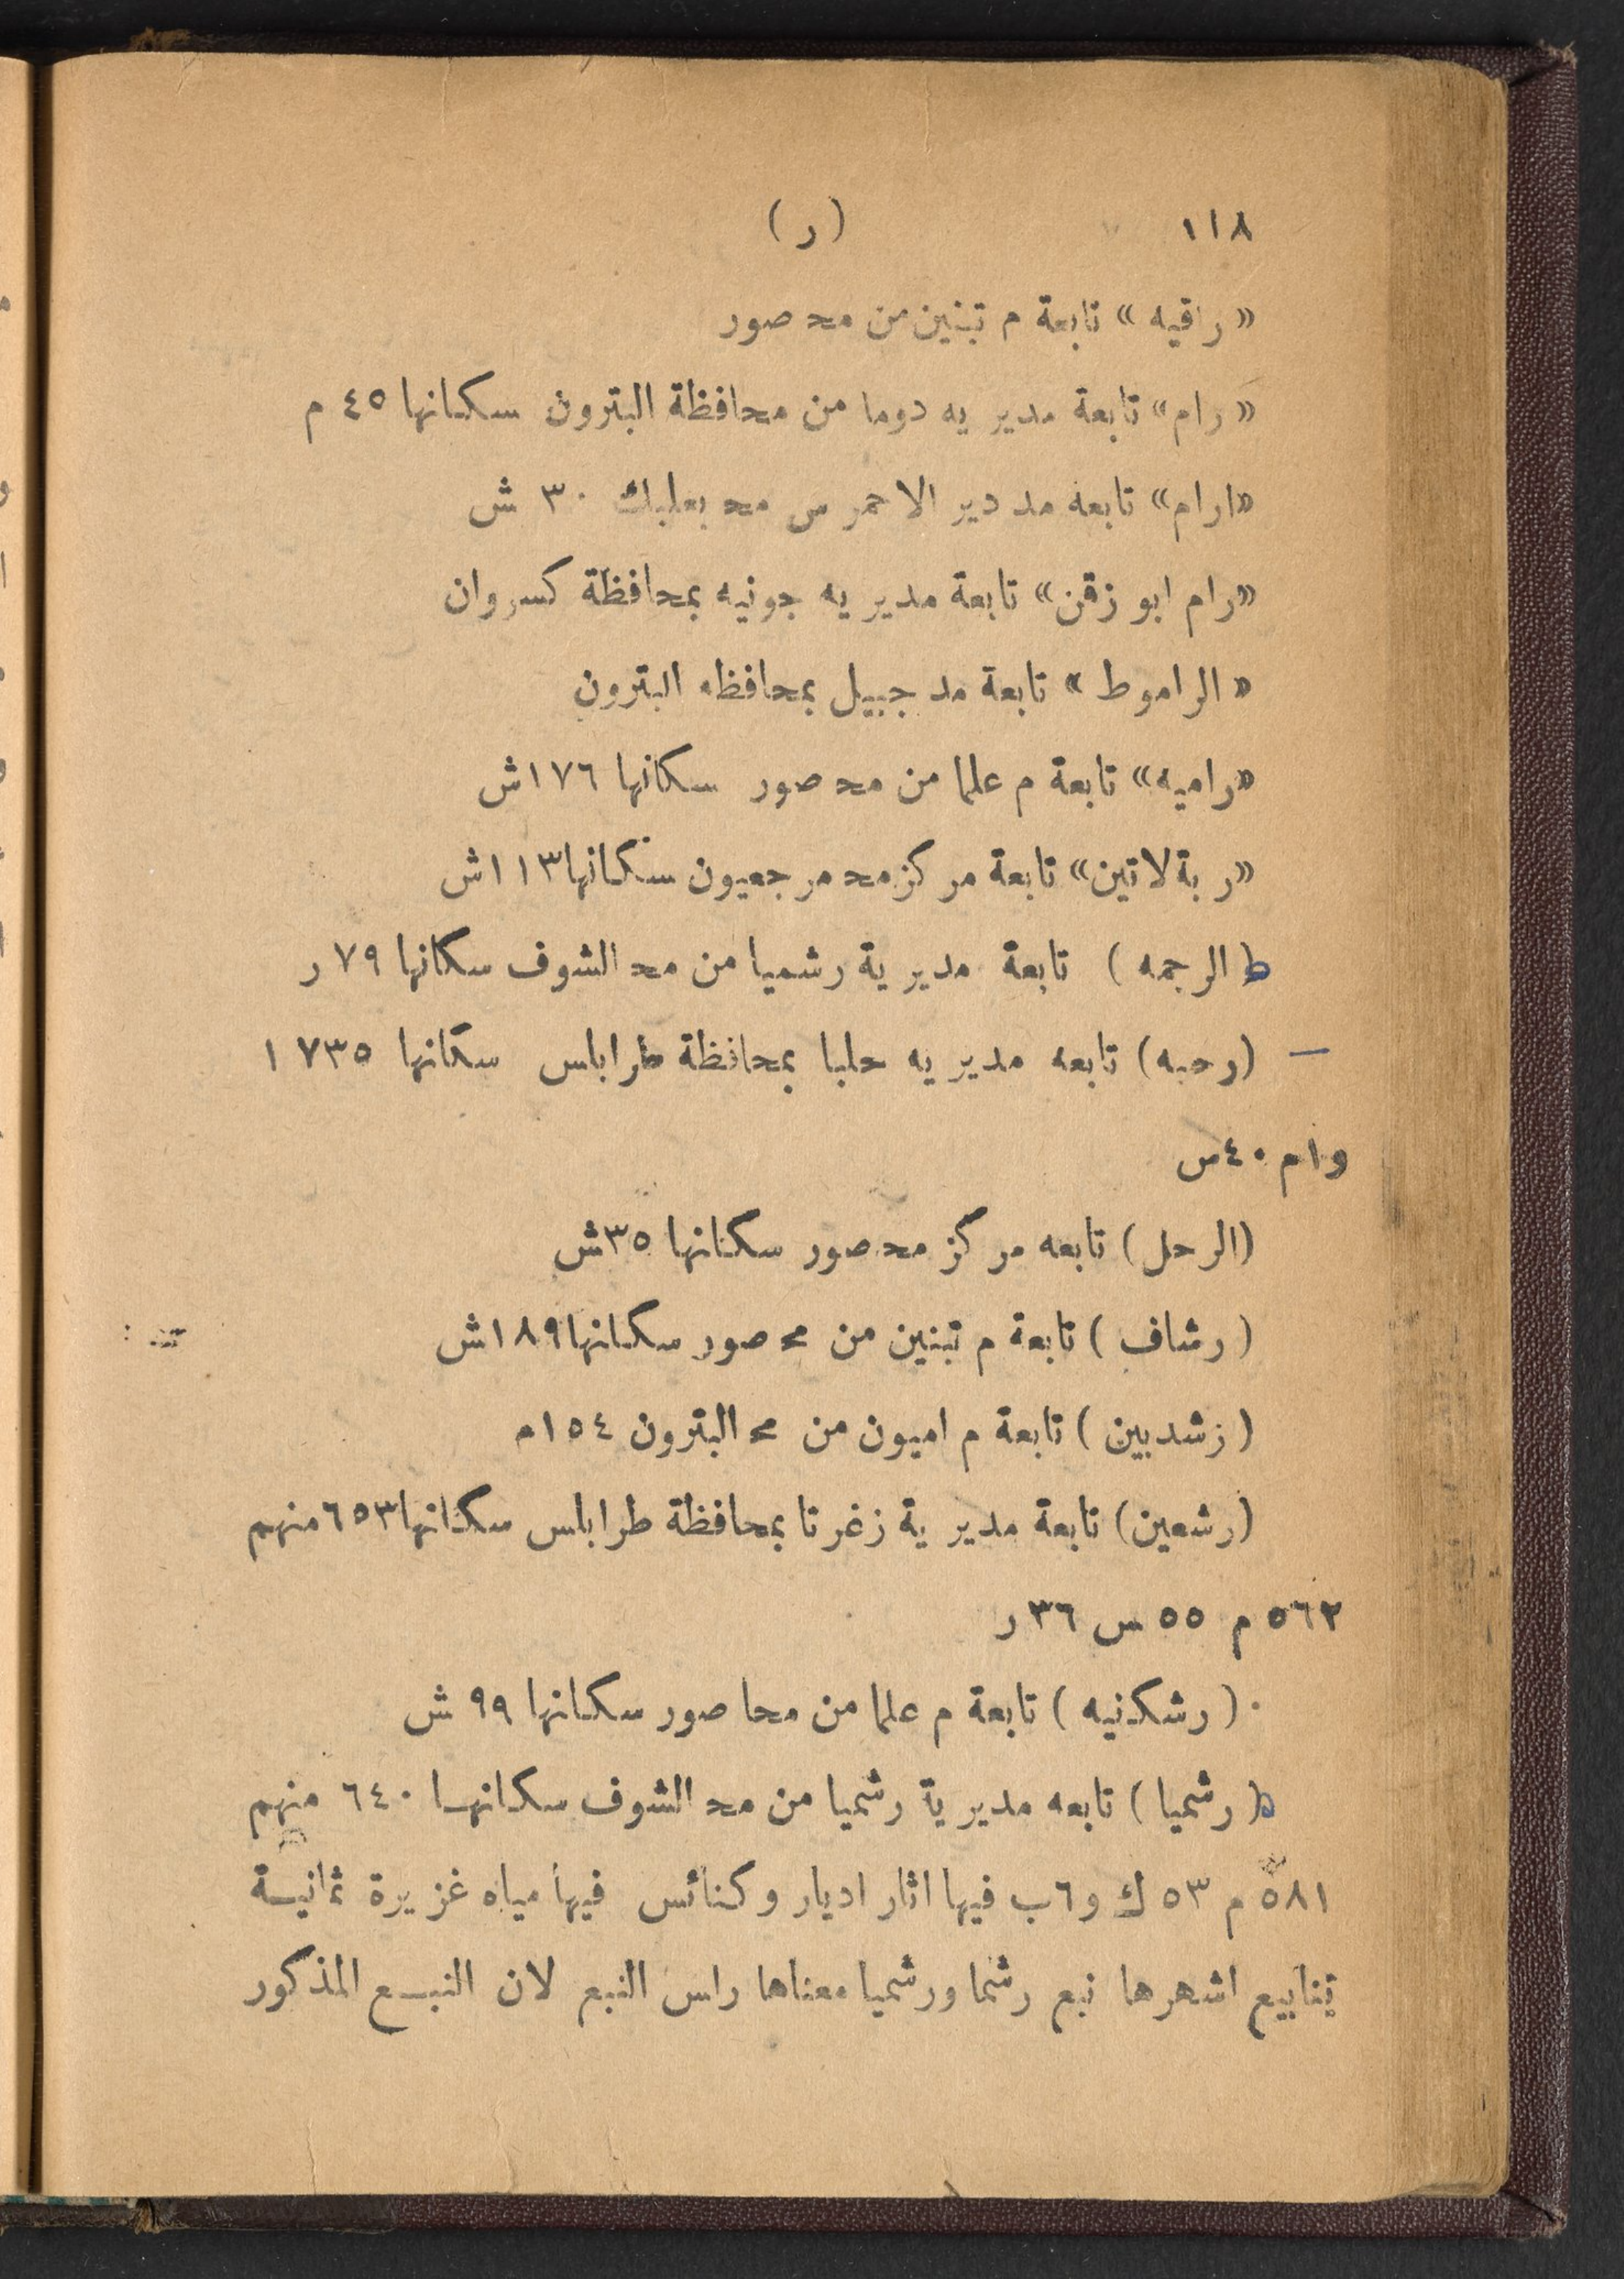 ١١٨ (ر)
«راقيه» تابعة م تبنين من محـ صور
«رام» تابعة مديريه دوما من محافظة البترون سكانها ٤٥ م
«ارام» تابعه مد دير الاحمر من محـ بعلبك ٣٠ ش
«رام ابو زقن» تابعة مديريه جونيه بمحافظة كسروان
«الراموط» تابعة مد جبيل بمحافظه البترون
«راميه» تابعة م علما من محـ صور سكانها ١٧٦ش
«ربة لاتين» تابعة مركز محـ مرجعيون سكانها ١١٣ش
(الرجمه) تابعة مديرية رشميا من محـ الشوف سكانها ٧٩ر
— (رحبه) تابعه مديريه حلبا بمحافظة طرابلس سكانها ١٧٣٥
و١م ٤٠س
(الرحل) تابعه مركز محـ صور سكانها ٣٥ش
(رشاف) تابعة م تبنين من محـ صور سكانها ١٨٩ش
(زشدبين) تابعة م اميون من محـ البترون ١٥٤م
(رشعين) تابعة مديرية زغرتا بمحافظة طرابلس سكانها ٦٥٣ منهم
٥٦٢ م ٥٥ س ٣٦ر
(رشكنيه) تابعة م علما من محا صور سكانها ٩٩ ش
(رشميا) تابعه مديرية رشميا من محـ الشوف سكانها ٦٤٠ منهم
٥٨١ م ٥٣ ك و٦ب فيها اثار اديار وكنائس فيها مياه غزيرة ثمانية
ينابيع اشهرها نبع رشما ورشميا معناها راس النبع لان النبع المذكور